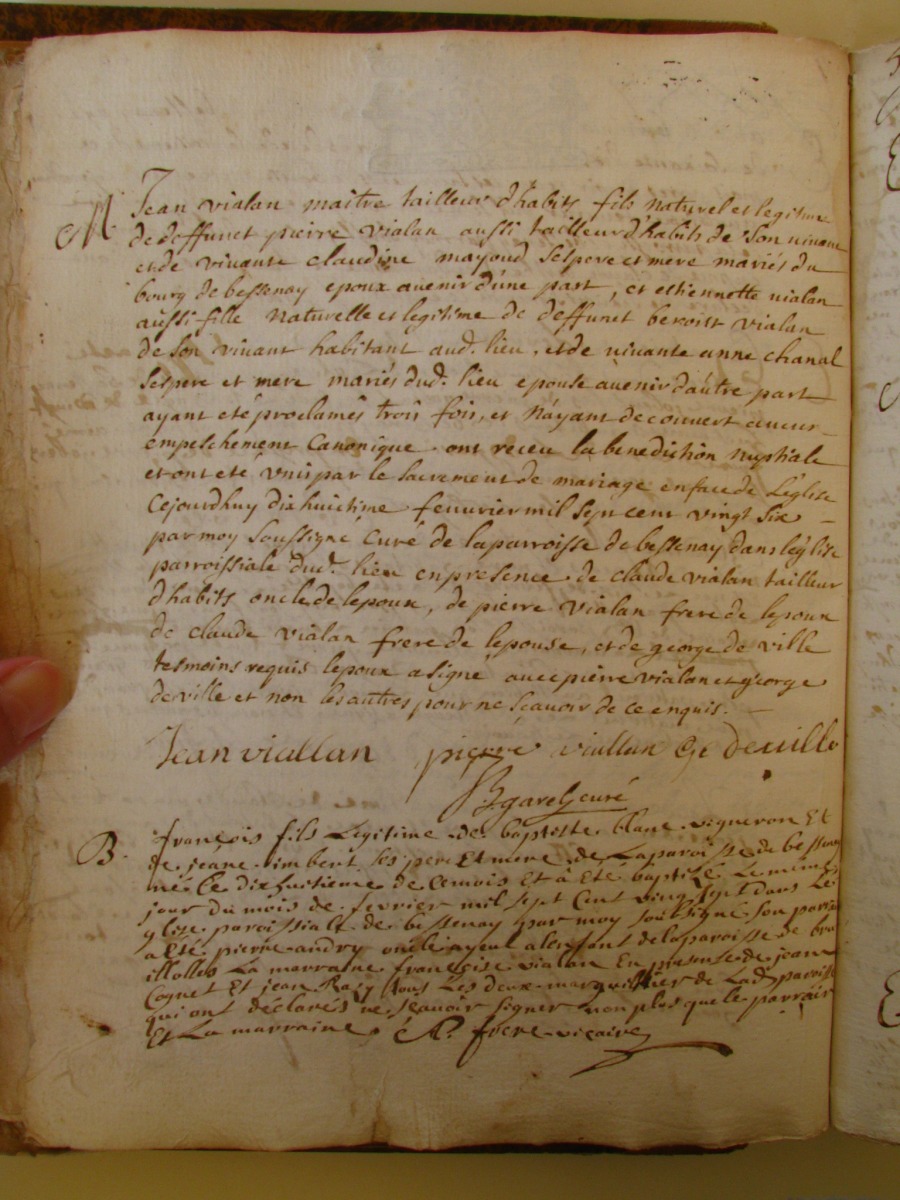 M. Jean vialan maitre tailleur d'habits fils naturel et legitime
de deffunct pierre vialan aussi tailleur d'habits de son vivant
et de vivante claudine mayoud ses pere et mere mariés du
bourg de bessenay epoux avenir d'une part, et estiennette vialan
aussi fille naturelle et legitime de deffunct benoist vialan
de son vivant habitant aud. lieu, et de vivante anne chanal
ses pere et mere mariés dud. lieu epouse avenir d'autre part
ayant eté proclamés trois fois, et n'ayant decouvert aucun
empeschement canonique ont receu la benediction nuptiale
et ont eté unis par le sacrement de mariage en face de l'eglise
cejourdhuy dixhuictime fevurier mil sept cent vingt six
par moy soussigné curé de la parroisse de bessenay dans l'eglise
parroissiale dud. lieu en presence de claude vialan tailleur
d'habits oncle de lepoux, de pierre vialan frere de lepoux
de claude vialan frere de lepouse, et de george de ville
tesmoins requis lepoux a signé avec pierre vialan et george
deville et non les autres pour ne sçavoir de ce enquis.
Jean viallan pierre viallan G deville
curé
B. françois fils Legitime de baptiste blanc vigneron Et
de jeane imbert ses pere Et mere de La paroisse de bessenay
né Le dixhuitieme de ce mois Et à Eté baptisé Le même
jour du mois de fevrier mil sept Cent vingt sept dans Le
glise paroissialle de bessenay par moy soussigné son parrain
a Eté pierre andry oncle ayeul a lenfant de la paroisse de bru
illolles La marraine françoise vialan En presence de jean
Cognet Et jean tous Les deux marguillier de Lad. paroisse
qui ont déclarés ne sçavoir signer non plus que le parrain
Et La marraine. vicaire